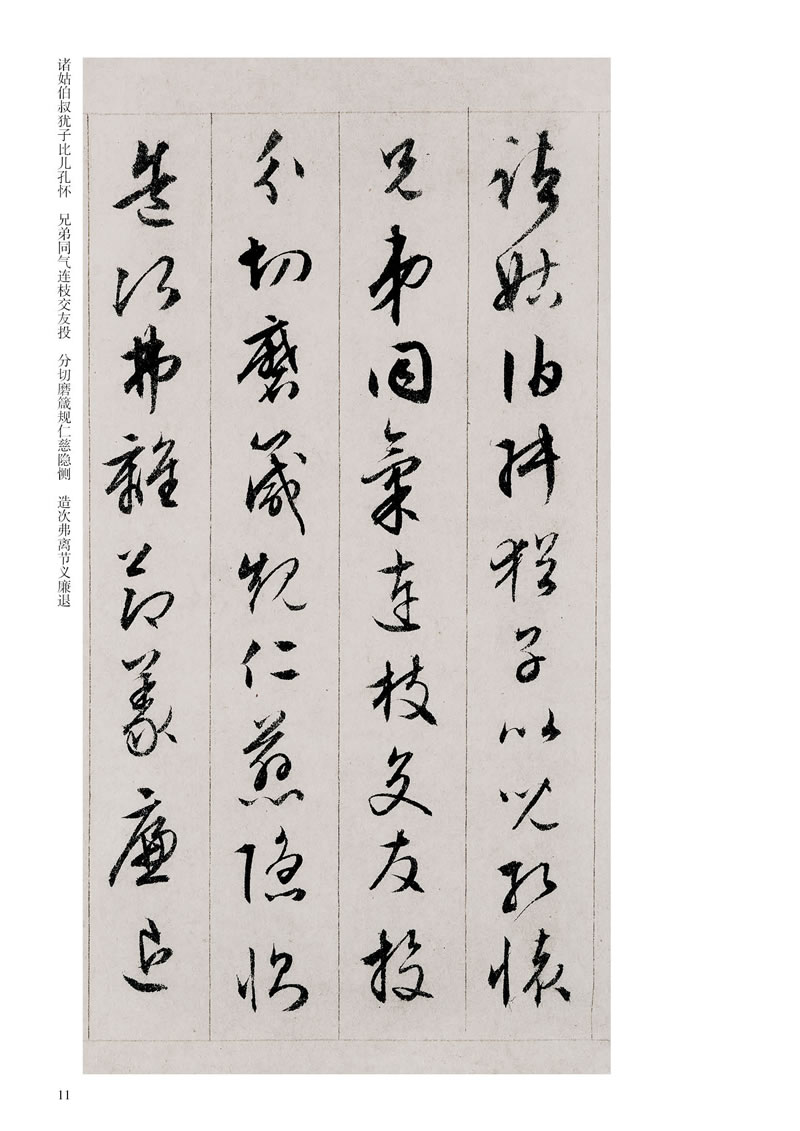 諸姑伯叔猶子比兒孔懷
兄弟同氣連枝交友投
分切磨箴規仁慈隱惻
造次弗離節義廉退
诸姑伯叔犹子比儿孔怀　兄弟同气连枝交友投　分切磨箴规仁慈隐恻　造次弗离节义廉退
11